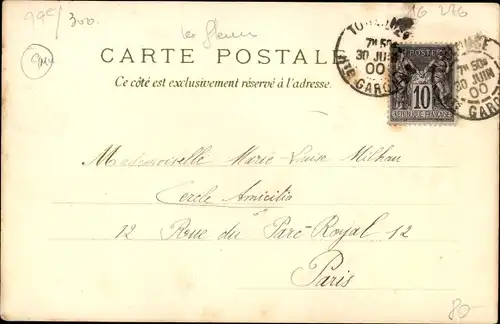 99e/300
les fleurs
16 226
CARTE POSTALE
Ce côté est exclusivement réservé à l'adresse.
TOULOUSE
7H 50M
30 JUIN
00
HTE GARONNE
7H 50M
30 JUIN
00
POSTES
10
REPUBLIQUE FRANÇAISE
Mademoiselle Marie-Louise Milhau
Cercle Amicitia
12 Rue du Parc-Royal 12
Paris
80-